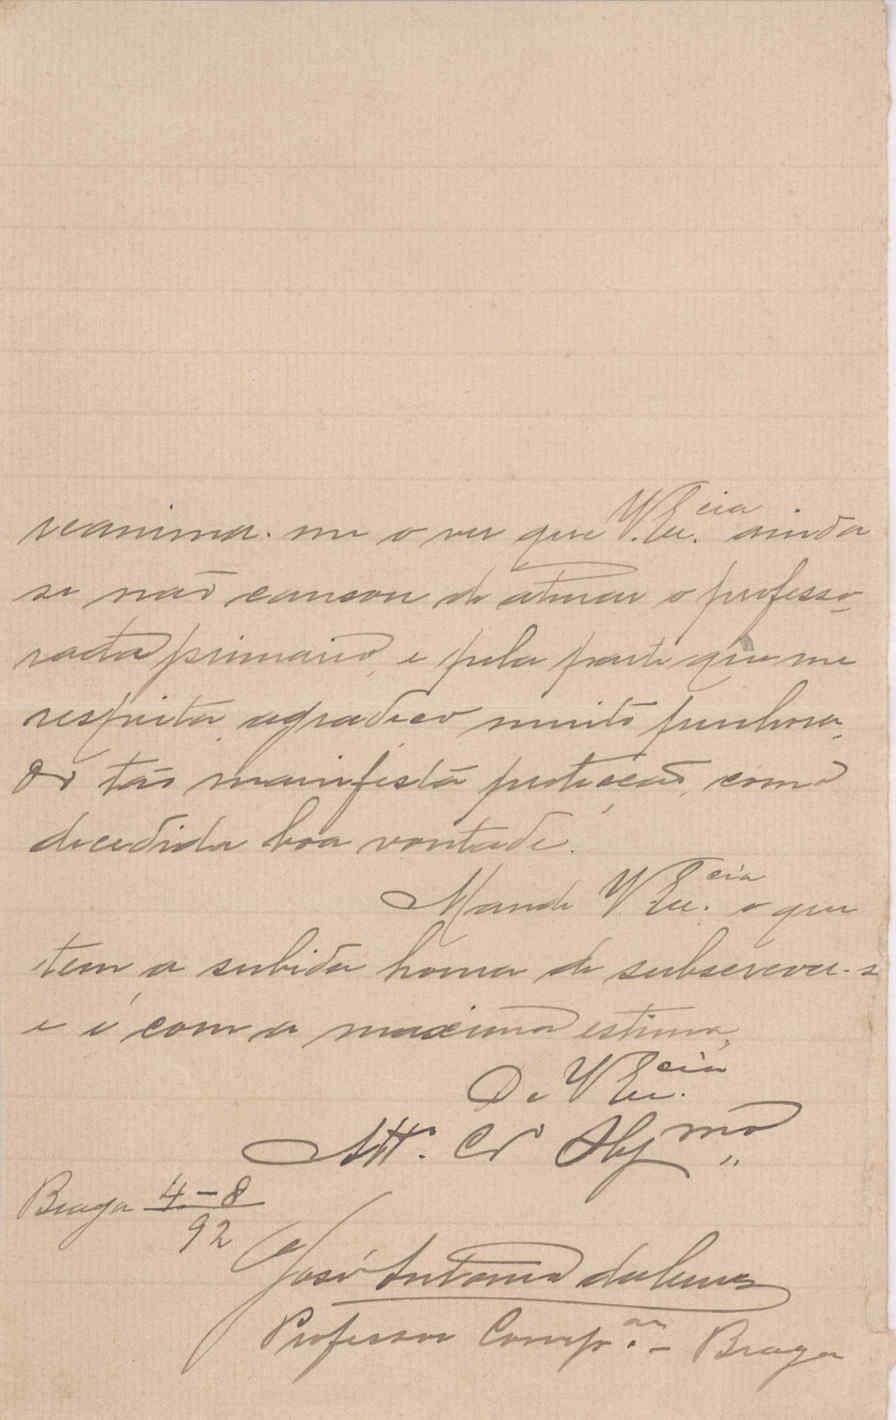 reanima-me o ver que V. Ex.cia ainda
se não cançou de aturar o professo-
rado primario, e pela parte que me
respeita, agradeço muito penhora-
do tão manifesta protecção, como
decedida boa vontade.
Mande V. Ex.cia o que
tem a subida honra de subscrever-s
e é com a maxima estima,
De V Ex.cia
Att.º Cr.º Obgmo
Braga 4-8
92
José Antonio
Professor Comp.ar - Braga